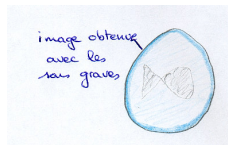 image obtenue
avec les
sons graves